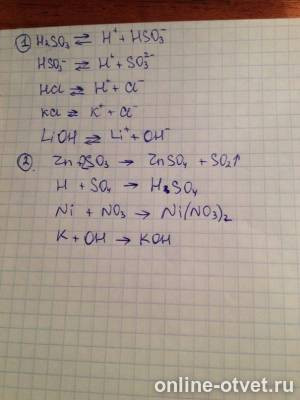 ① H₂SO₃ ⇄ H⁺ + HSO₃⁻
HSO₃⁻ ⇄ H⁺ + SO₃²⁻
HCl ⇄ H⁺ + Cl⁻
KCl ⇄ K⁺ + Cl⁻
LiOH ⇄ Li⁺ + OH⁻
② Zn + SO₃ → ZnSO₄ + SO₂↑
H + SO₄ → H₂SO₄
Ni + NO₃ → Ni(NO₃)₂
K + OH → KOH
online-otvet.ru